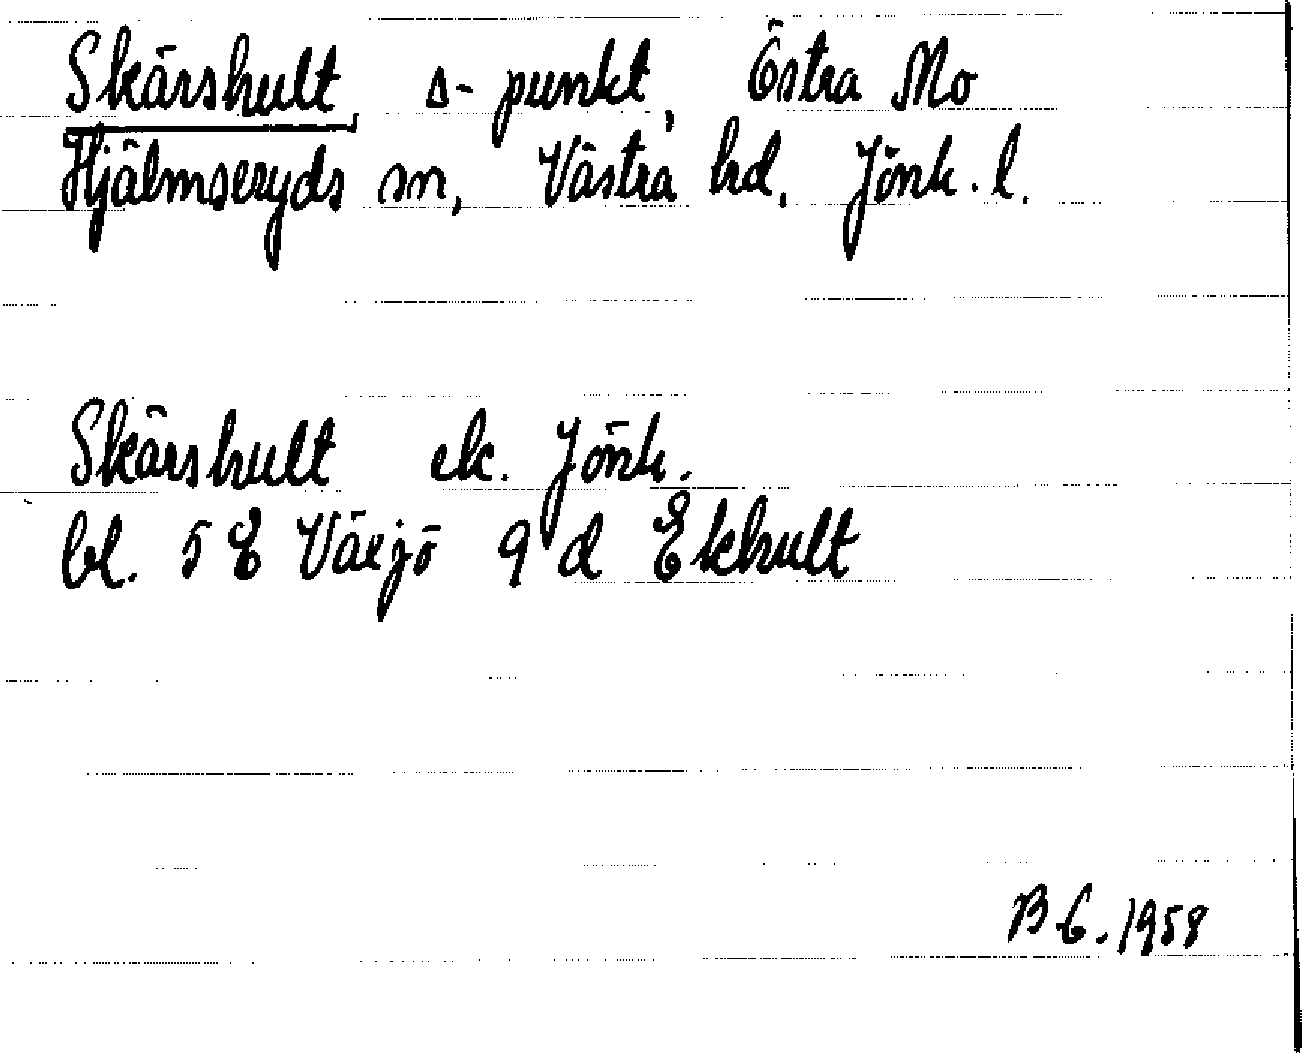 Skärshult, Δ-punkt, Östra Mo
Hjälmseryds sn, Västra hd, Jönk. l.
Skärshult ek. Jönk.
bl. 5 E Växjö 9 d Ekhult
B G. 1958